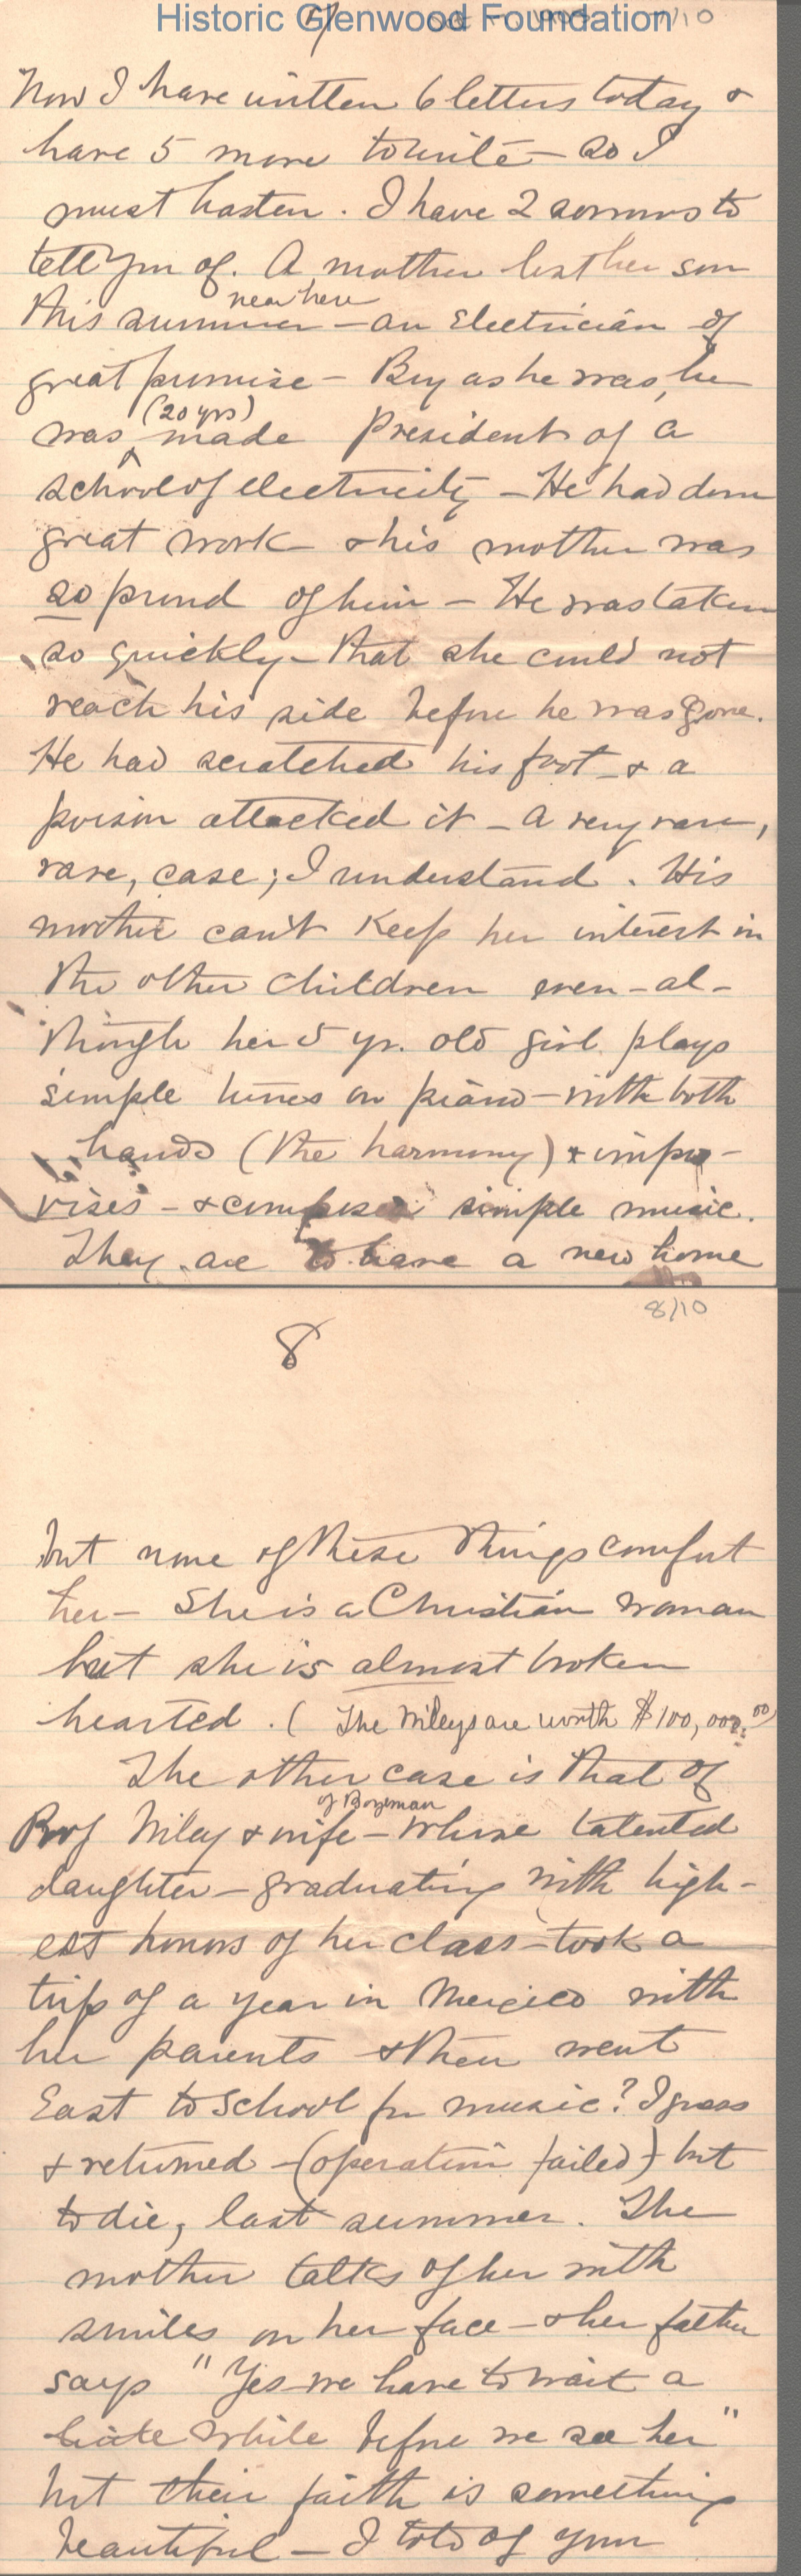 Historic Glenwood Foundation
7
7/10
Now I have written 6 letters today &
have 5 more to write – so I
must hasten. I have 2 sorrows to
tell you of. A mother lost her son
near here
this summer – an Electrician of
great promise – Boy as he was, he
(20 yrs)
was made President of a
school of electricity – He had done
great work & his mother was
so proud of him – He was taken
so quickly – that she could not
reach his side before he was gone.
He had scratched his foot – & a
poison attacked it – a very rare,
rare, case; I understand. His
mother can't keep her interest in
the other children even – al-
though her 5 yr. old girl plays
simple tunes on piano – with both
hands (the harmony) & impro-
vises – & composes simple music.
They are to have a new home
8/10
8
but none of these things comfort
her – She is a Christian woman
but she is almost broken
hearted. (The Wileys are worth $100,000.00)
The other case is that of
of Bozeman
Prof Wiley & wife – whose talented
daughter – graduating with high-
est honors of her class – took a
trip of a year in Mexico with
her parents & then went
East to school for music? I guess
& returned – (operation failed) but
to die, last summer. The
mother talks of her with
smiles on her face – & her father
says "Yes we have to wait a
while before we see her"
but their faith is something
beautiful – I told of your